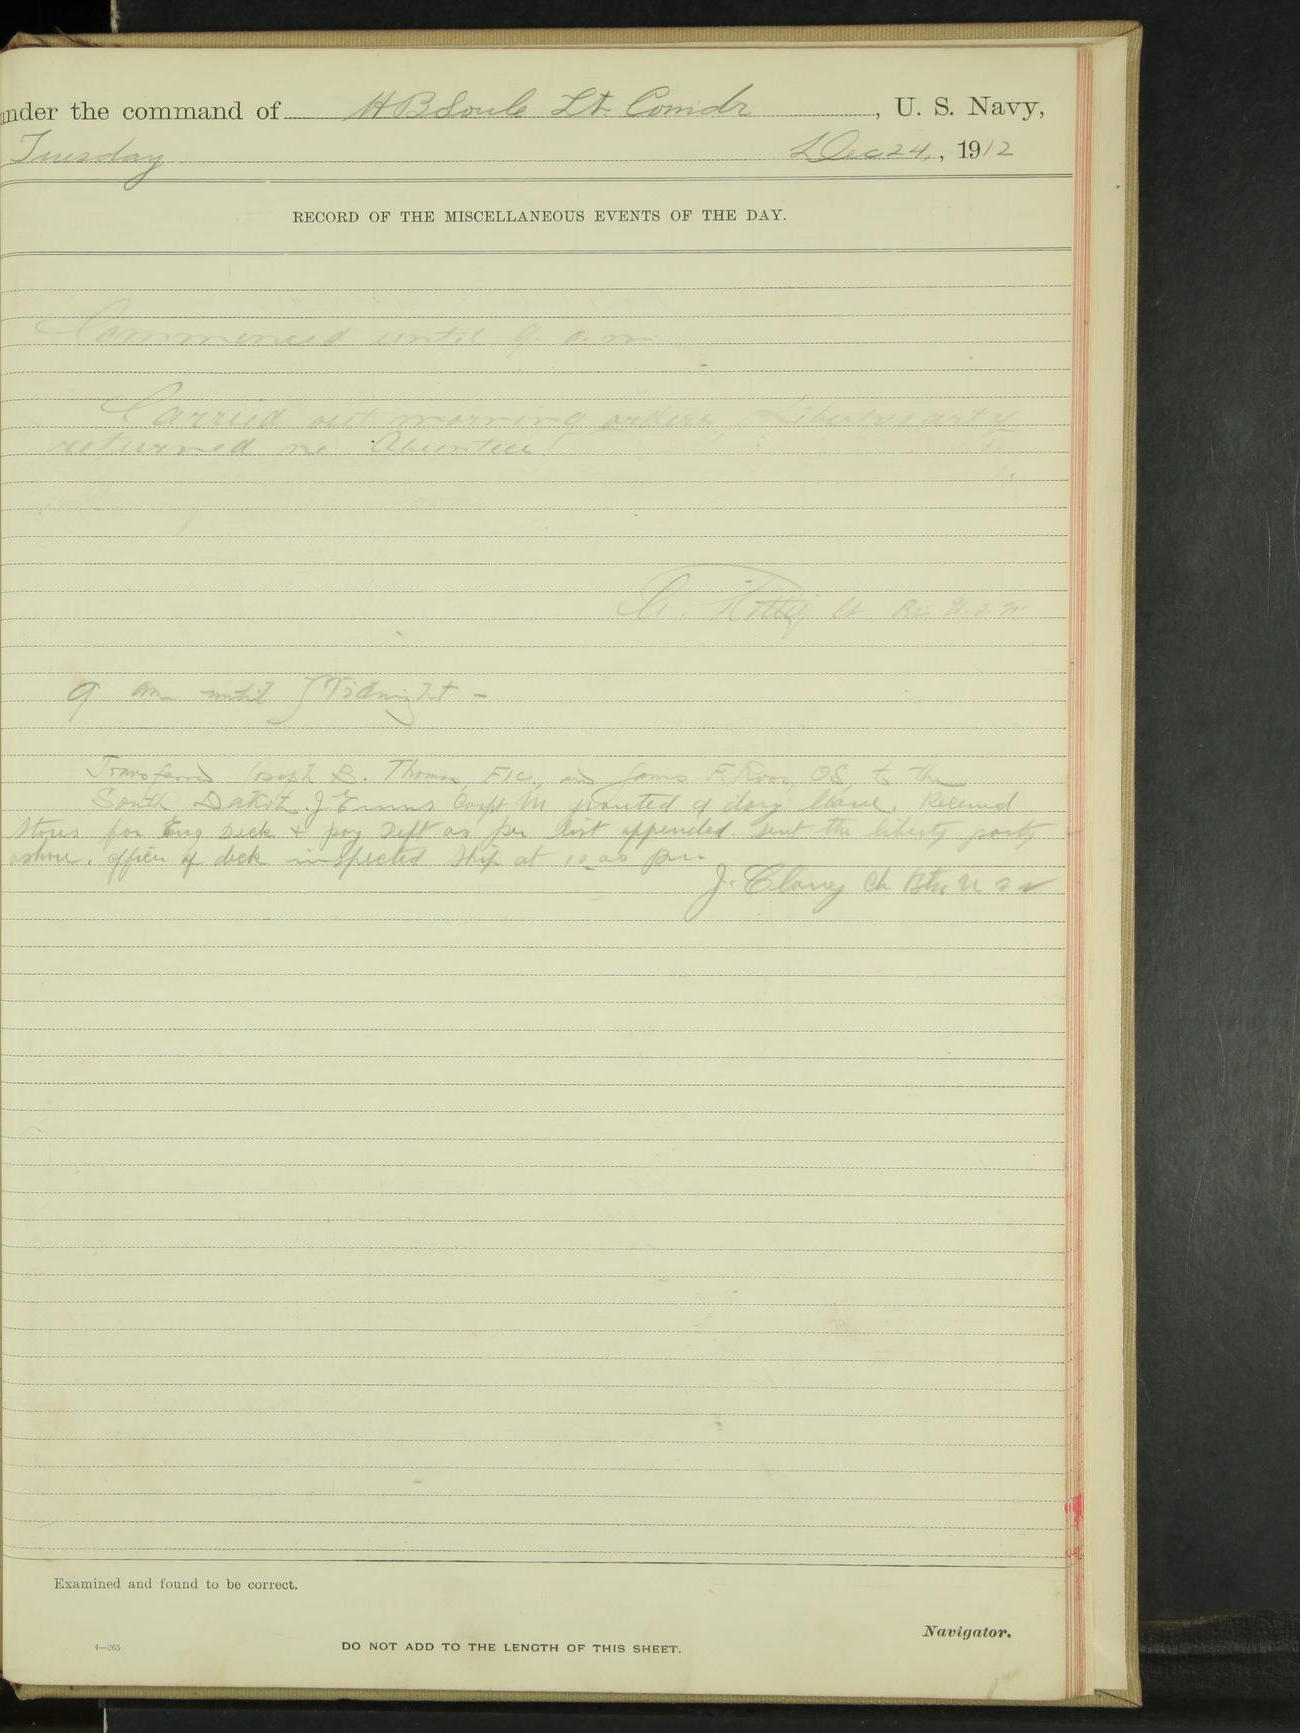 under the command of H B Soule Lt. Comdr, U. S. Navy,
Tuesday Dec 24, 1912
RECORD OF THE MISCELLANEOUS EVENTS OF THE DAY.
Commenced until 9 a.m.
Carried out morning orders, Liberty party
returned no Absentees
U.S.N.
9 am until Midnight -
Transferred Joseph B. Thomas F1c, and James F. Ross, OS, to the
South Dakota. J Emms granted 9 days leave. Received
Stores for Eng Deck & pay Dept as per list appended Sent the liberty party
ashore. Officer of deck inspected ship at 10.00 pm.
J. Clancy Ch Btn U S N
Examined and found to be correct.
Navigator.
4—265
DO NOT ADD TO THE LENGTH OF THIS SHEET.